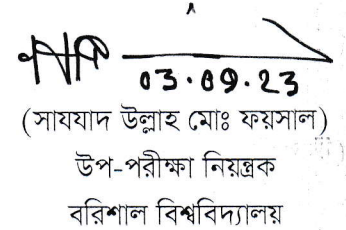 03.09.23
(সাযযাদ উল্লাহ মোঃ ফয়সাল)
উপ-পরীক্ষা নিয়ন্ত্রক
বরিশাল বিশ্ববিদ্যালয়